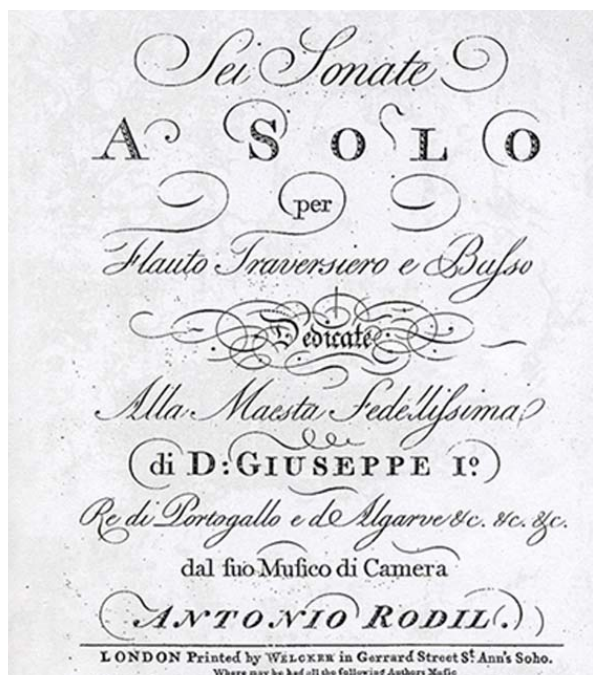 Sei Sonate
A SOLO
per
Flauto Traversiero e Baſso
Dedicate
Alla Maesta Fedeliſsima
di D: GIUSEPPE Iº.
Re di Portogallo e de Algarve &c. &c. &c.
dal ſuo Muſico di Camera
ANTONIO RODIL.
LONDON Printed by WELCKER in Gerrard Street St. Ann's Soho.
Where may be had all the following Authors Muſic